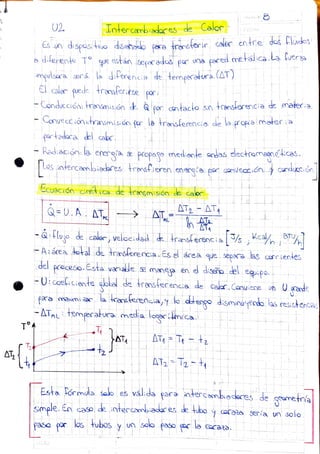 8
U2. Intercambiadores de Calor
Es un dispositivo diseñado para transferir calor entre dos fluidos
a diferente Tº que están separados por una pared metálica. La fuerza
impulsora será la diferencia de temperatura (ΔT)
El calor puede transferirse por:
- Conducción: transmisión de Q por contacto sin transferencia de materia.
- Convección: transmisión por la transferencia de la propia materia
portadora del calor.
- Radiación: la energía se propaga mediante ondas electromagnéticas.
[Los intercambiadores transfieren energía por convección y conducción]
Ecuación cinética de transmisión de calor
Q = U . A . ΔTML → ΔTML = ΔT2 - ΔT1
ln ΔT2
ΔT1
- Q: flujo de calor, velocidad de transferencia [J/s, Kcal/h, BTU/h]
- A: área total de transferencia. Es el área que separa las corrientes
del proceso. Esta variable se maneja en el diseño del equipo.
- U: coeficiente global de transferencia de calor. Conviene un U grande
para maximizar la transferencia, y lo obtengo disminuyendo las resistencias.
- ΔTML: temperatura media logarítmica.
Tº
T1
T2
ΔT1
ΔT1 = T1 - t2
ΔT2
t1
t2
ΔT2 = T2 - t1
Esta fórmula solo es válida para intercambiadores de geometría
simple. En caso de intercambiadores de tubo y coraza sería un solo
paso por los tubos y un solo paso por la coraza.